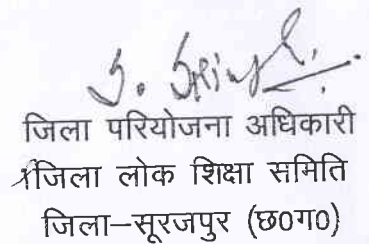 जिला परियोजना अधिकारी
जिला लोक शिक्षा समिति
जिला–सूरजपुर (छ0ग0)